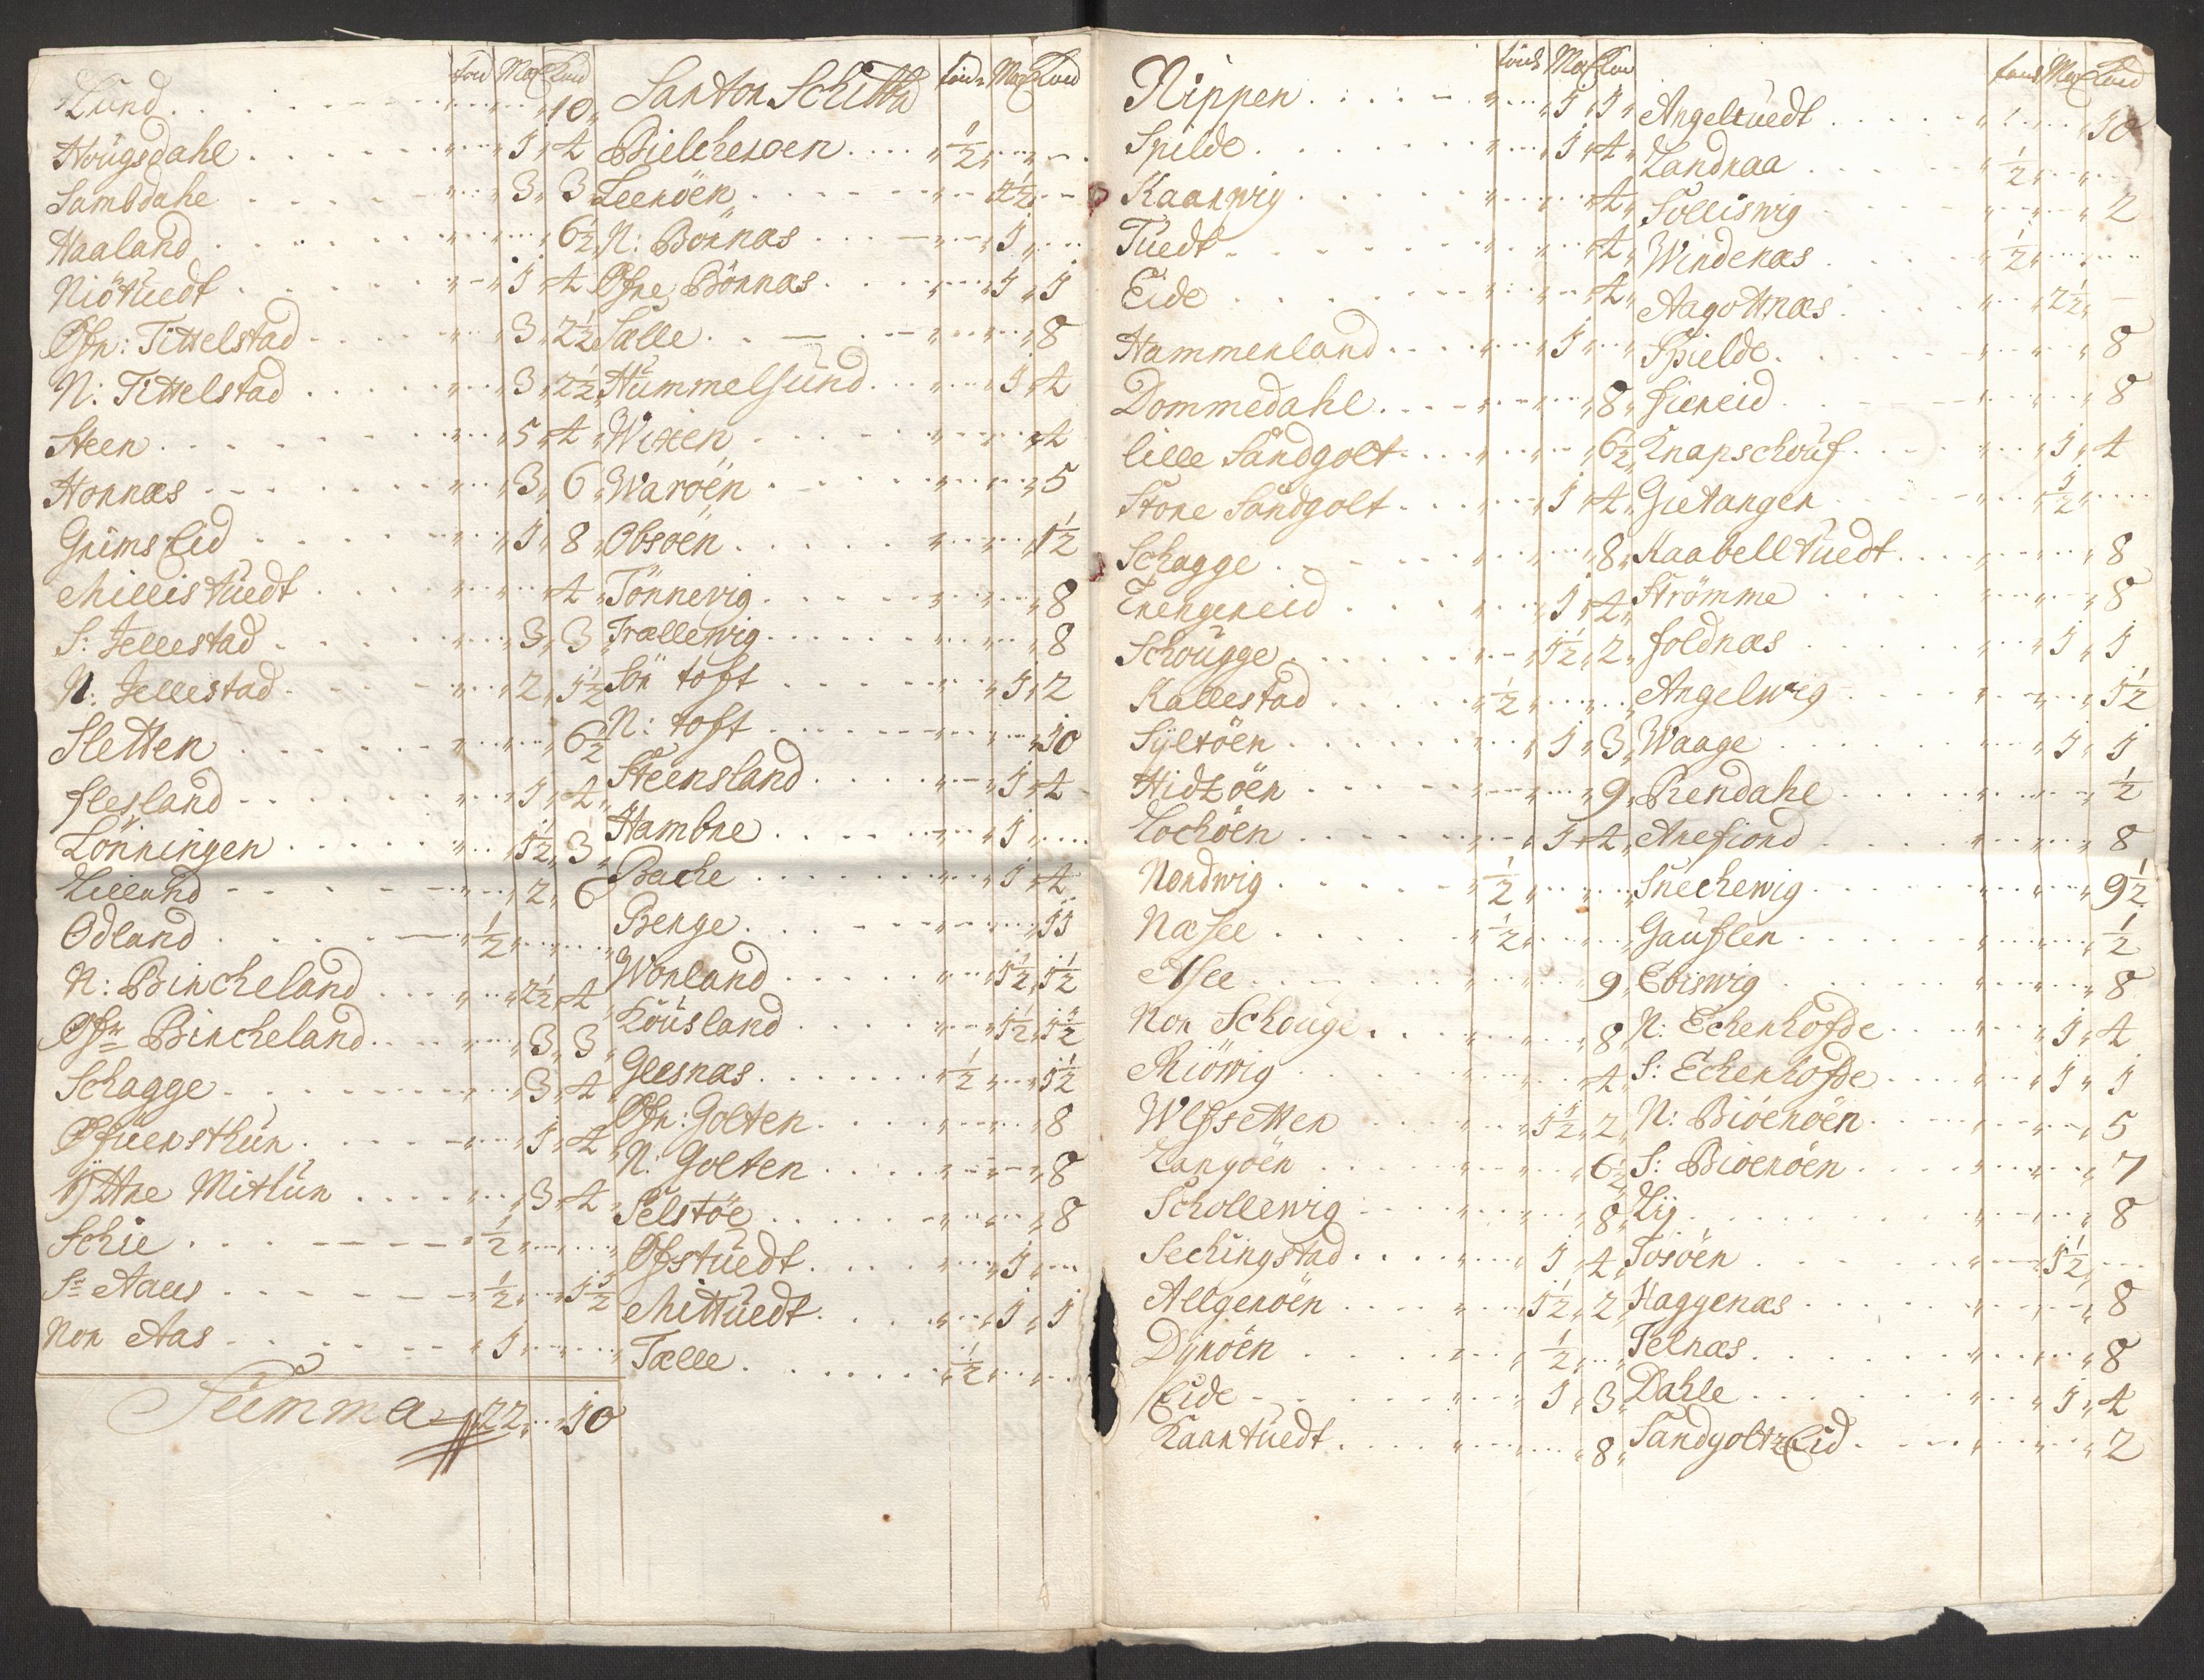 Lund 10
Hougsdahl 1 4
Sambdahe 3 3
Haaland 6½
Niötuedt 1 4
Øfr: Tittelstad 3 2½
N: Tittelstad 3 2½
Steen 5 4
Hornnæs 3 6
Grims Eid 1 8
Millistuedt 4
S: Jellestad 3 3
N: Jellestad 2 1½
Sletten 6½
flesland 1 4
Lönningen 1½ 3
Lilland 2 6
Odland ½
N: Bircheland 2½ 4
Øfr Bircheland 3 3
Schagge 3 4
Øfuersthun 1 4
Ÿttre Mithun 3 4
Schie ½
Sr Aaes ½ 1½
Nor Aas 1
Summa 22 10
Sartor Schibbr
Bielcheroen ½
Leeröen 4½
N: Börnæs 1
Øfre Börnæs 1 1
Sælle 8
Hummelsund 1 4
Wixen 4
Waröen 5
Obsöen 1½
Tönnevig 8
Trællevig 8
Sör toft 1 2
N: toft 10
Steensland 1 4
Hambre 1
Bache 1 4
Berge 11
Worland 1½ 1½
Kousland 1½ 1½
Glesnæs ½ 1½
Øfr: Golten 8
N: Golten 8
Selstöe 8
Øfstuedt 1
Mittuedt 1 1
Tælle ½
Kippen 1 1
Spilde 1 4
Kaarwig 4
Tuedt 4
Eide 4
Hammersland 1
Dommedahl 8
lille Sundgolt 6½
Store Sundgolt 1 4
Schagge 8
Trengereid 1 4
Schougge 1½ 2
Kallestad ½
Syltöen 1 3
Hidtöen 9
Lochöen 1 4
Nordwig ½
Næsee ½
Algee 9
Nor Schouge 8
Miöwig 4
Wlfsetter 1½ 2
Langöen 6½
Schollewig 8
Sechingstad 1 4
Allgeröen 1½ 2
Dyröen ½
Eide 1 3
Kaartuedt 8
Angeltuedt 10
Landraa ½
Solleswig 2
Windenæs ½
Aagotnæs 2½
Spielde 8
fiereid 8
Knapschouf 1 4
Gietanger ½
Kaabelltuedt 8
Strömme 8
foldnæs 1 1
Angelwig 1½
Waage 1 1
Rendahl ½
Arefiord 8
Snechewig 9½
Gauflen ½
Ebiswig 8
N: Echerhofde 1 4
S: Echerhofde 1 1
N: Biöröen 5
S: Biöröen 7
Lij 8
Tosöen 1½
Haggenæs 8
Telnæs 8
Dahle 1 4
SandgoltzEid 2